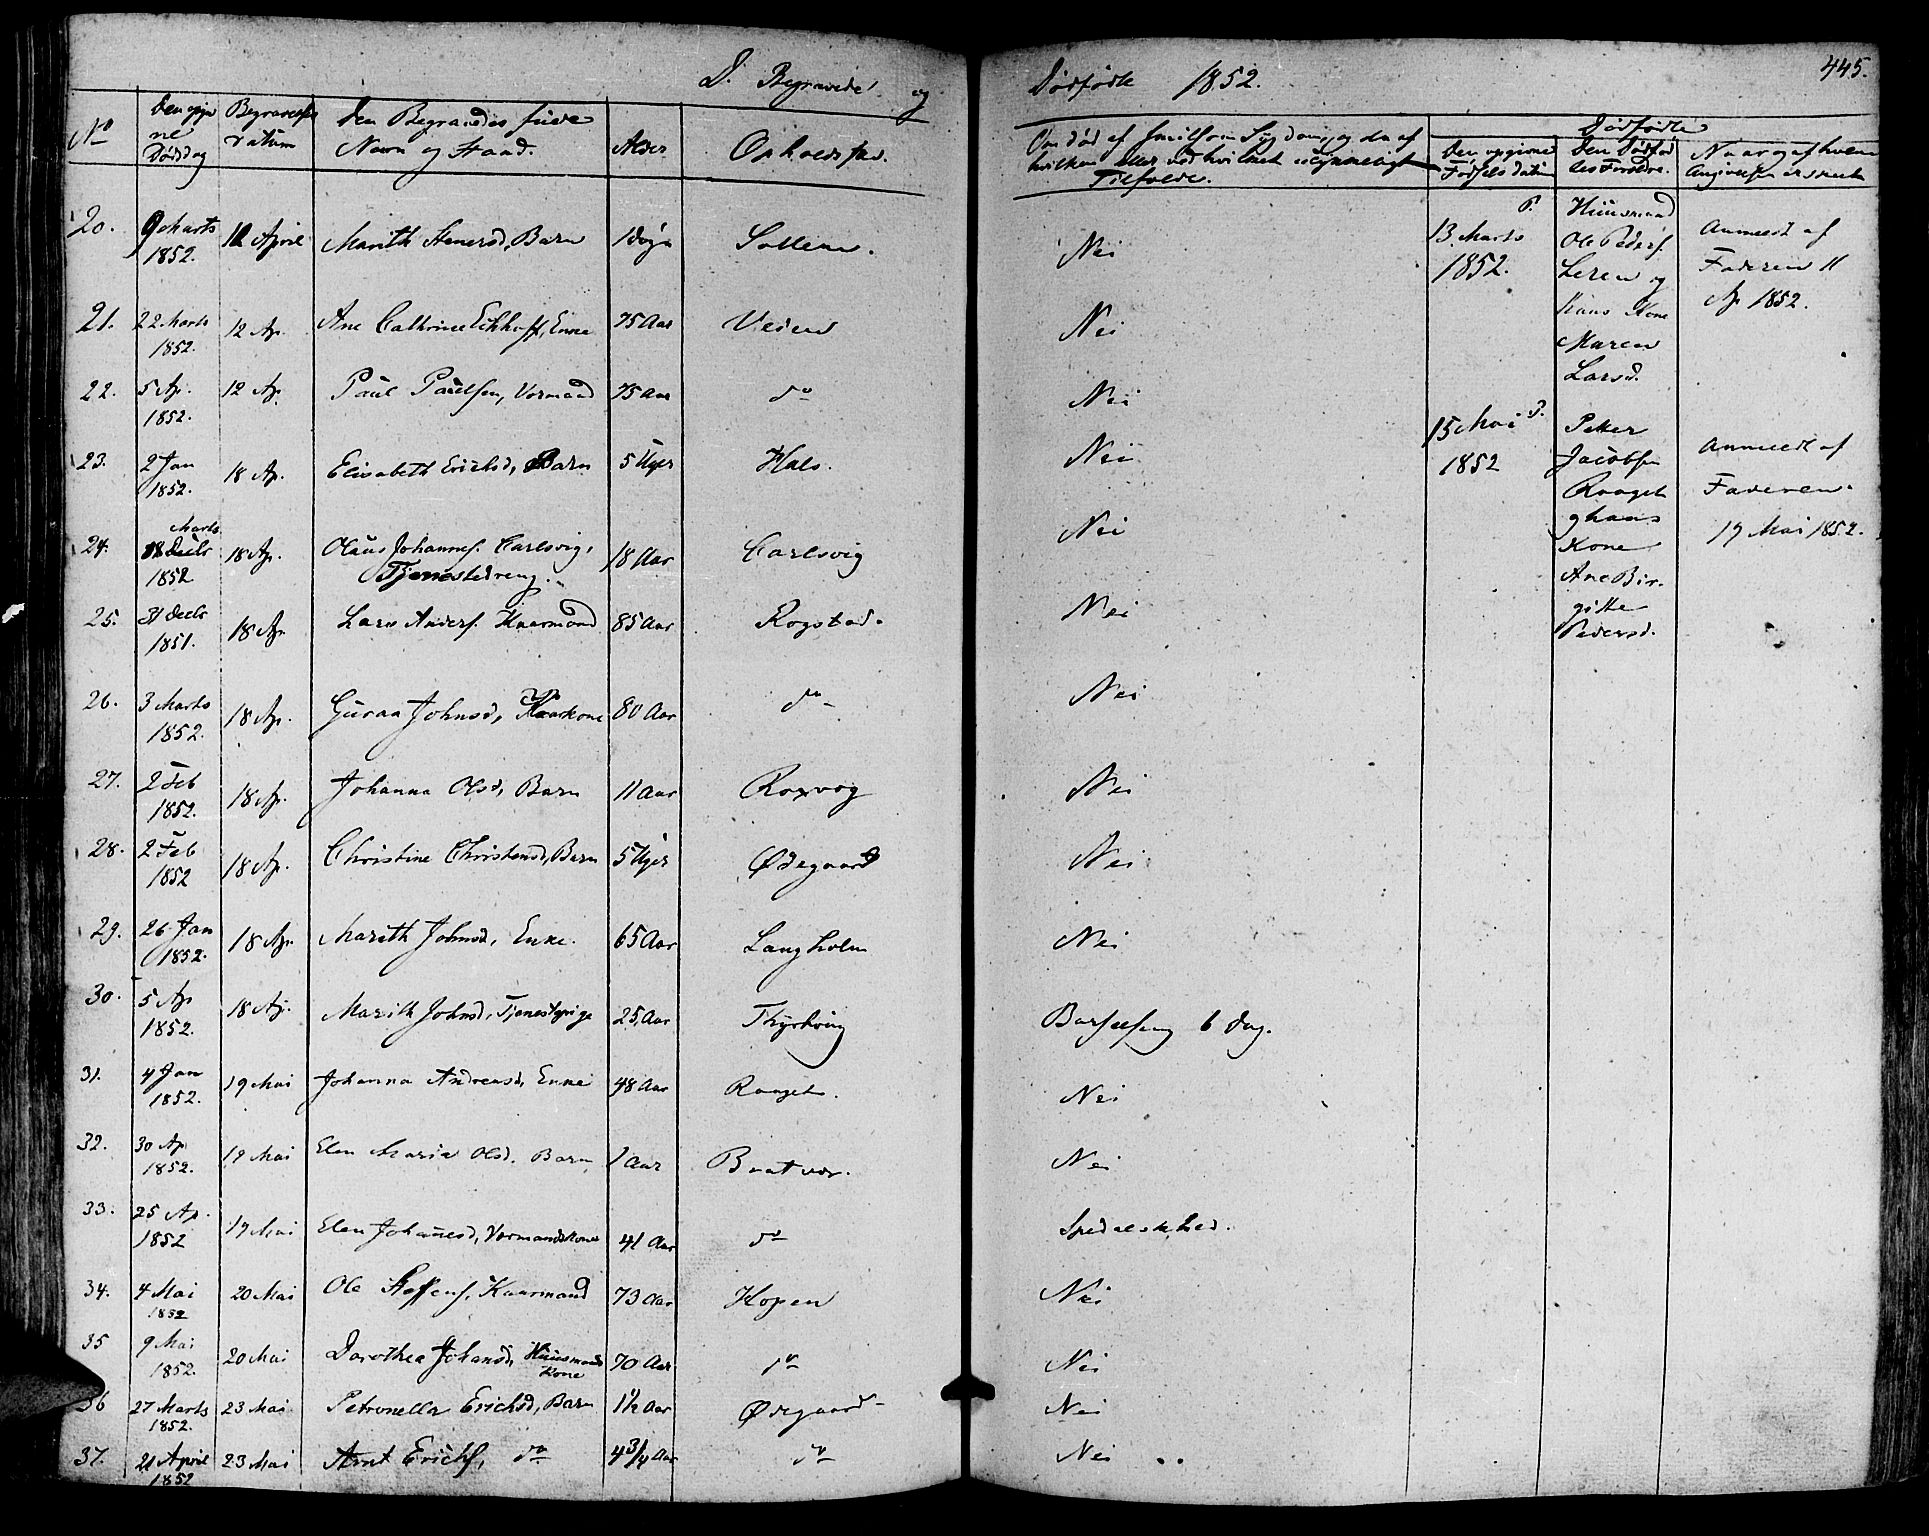 D. Begravede og Dødfødte 1852. 445.
No
Den opgivne Dødsdag
Begravelses Datum
Den Begravedes fulde Navn og Stand.
Alder
Opholdssted.
Om død af Smitsom Sygdom, og da af hvilken eller ved hvilket ulykkeligt Tilfælde.
Dødfødte
Den opgivne Fødsels datum
Den Dødfødtes Forældre.
Naar og af hvem Angivelsen er skeet
20. 9 Marts 1852. 12 April Marith Stenersd, Barn 1 Døgn Sollem. Nei
21. 22 Marts 1852. 12 Ap. Ane Cathrine Eckhoff, Enke 75 Aar Veien Nei
22. 5 Ap. 1852. 12 Ap. Paul Paulsen, Vormand 75 Aar do Nei
23. 2 Jan 1852. 18 Ap. Elisabeth Erichsd, Barn 5 Uger Hals. Nei
24. 18 Marts 1852 18 Ap. Olaus Johannes. Carlsvig, Tjenestedreng. 18 Aar Carlsvig Nei
25. 31 Decbr 1851. 18 Ap. Lars Anders. Kaarmand 85 Aar Rogstad. Nei
26. 3 Marts 1852. 18 Ap. Guraa Johnsd, Kaarkone 80 Aar do Nei
27. 2 Feb 1852. 18 Ap. Johanna Olsd, Barn 11 Aar Roxvog Nei
28. 2 Feb 1852 18 Ap. Christine Christensd, Barn 5 Uger Ødegaard Nei
29. 26 Jan 1852. 18 Ap. Marith Johnsd, Enke. 65 Aar Langholm Nei
30. 5 Ap 1852. 18 Ap. Marith Johnsd, Tjenestepige 25 Aar Barselseng 6 Dag.
31. 4 Jan 1852. 19 Mai Johanna Andreasd, Enke 48 Aar Raaget. Nei
32. 30 Ap 1852. 19 Mai Elen Maria Olsd. Barn 1 Aar Bratvær. Nei
33. 25 Ap. 1852 19 Mai Elen Johanesd, Vormandskone 41 Aar do Spedalskhed.
34. 4 Mai 1852 20 Mai Ole Steffens, Kaarmand 73 Aar Hopen Nei
35 9 Mai 1852. 20 Mai Dorothea Johansd, Huusmands Kone 70 Aar do Nei
36 27 Marts 1852. 23 Mai Petronella Erichsd, Barn 1½ Aar Ødegaard Nei
37. 21 April 1852 23 Mai Arnt Erichs, do 4 3/4 Aar do Nei
P.
13 Marts 1852.
Huusmand
Ole Peders.
Leren og
Hans Kone
Maren
Larsd.
Anmeldt af
Faderen 11
Ap 1852.
15 Mai P.
1852
Peter
Jacobsen
Raaget
og hans
Kone
Ane Bir-
gitte
Pedersd.
Anmeldt af
Faderen
19 Mai 1852.